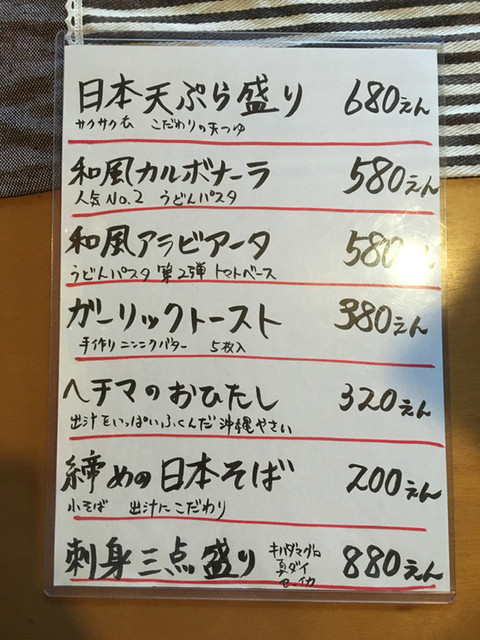 日本天ぷら盛り 680えん
サクサク衣 こだわりの天つゆ
和風カルボナーラ 580えん
人気No.2 うどんパスタ
和風アラビアータ 580えん
うどんパスタ 第2弾 トマトベース
ガーリックトースト 380えん
手作りニンニクバター 5枚入
ヘチマのおひたし 320えん
出汁をいっぱいふくんだ沖縄やさい
締めの日本そば 200えん
小そば 出汁にこだわり
刺身三点盛り キハダマグロ 880えん
真ダイ
セーイカ